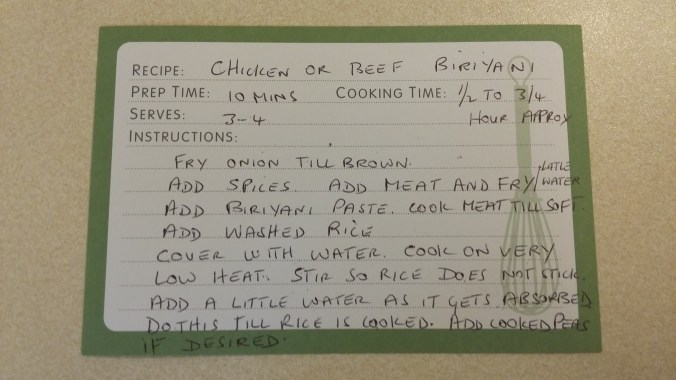 RECIPE: CHICKEN OR BEEF BIRIYANI
PREP TIME: 10 MINS COOKING TIME: 1/2 TO 3/4
SERVES: 3-4 HOUR APPROX
INSTRUCTIONS:
FRY ONION TILL BROWN.
ADD SPICES. ADD MEAT AND FRY/LITTLE WATER
ADD BIRIYANI PASTE. COOK MEAT TILL SOFT.
ADD WASHED RICE
COVER WITH WATER. COOK ON VERY
LOW HEAT. STIR SO RICE DOES NOT STICK.
ADD A LITTLE WATER AS IT GETS ABSORBED
DO THIS TILL RICE IS COOKED. ADD COOKED PEAS
IF DESIRED.